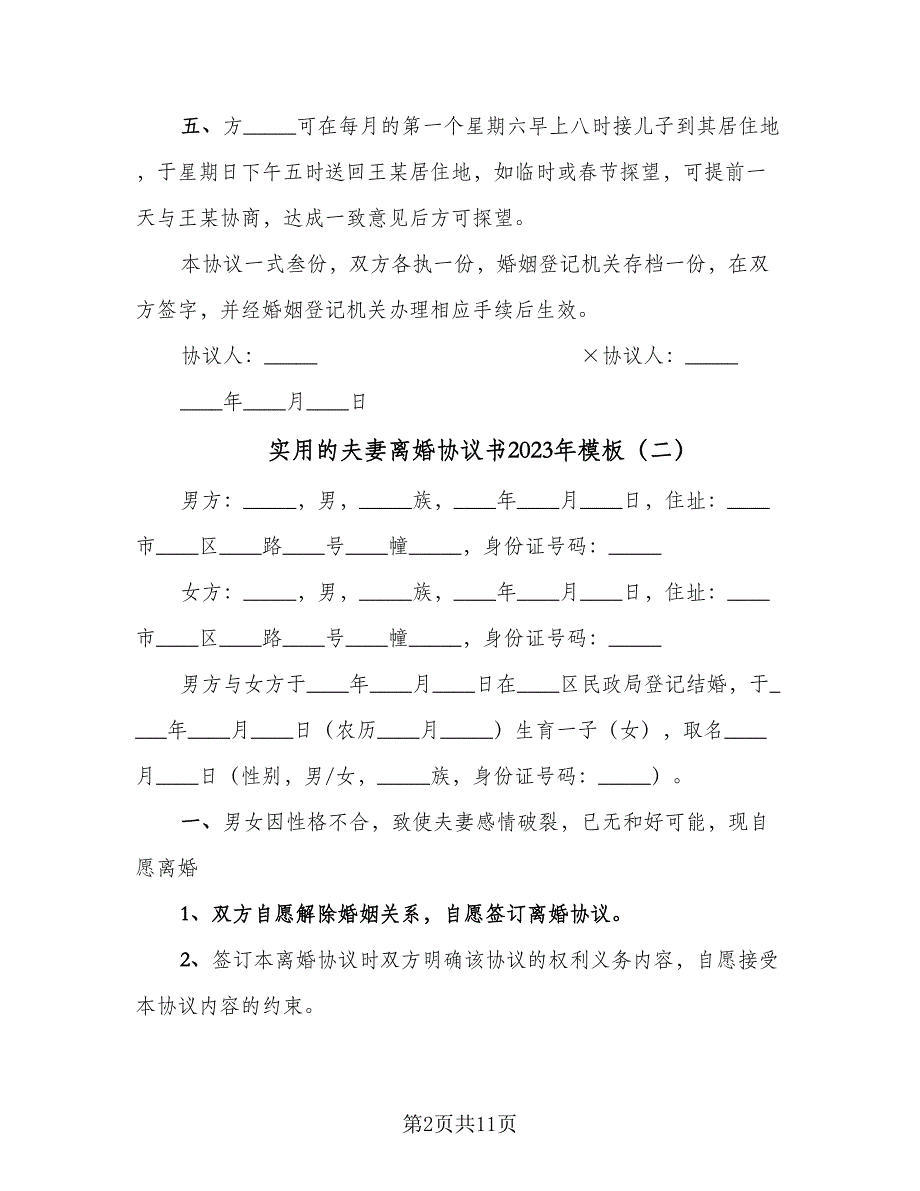 五、方_____可在每月的第一个星期六早上八时接儿子到其居住地
，于星期日下午五时送回王某居住地，如临时或春节探望，可提前一
天与王某协商，达成一致意见后方可探望。
本协议一式叁份，双方各执一份，婚姻登记机关存档一份，在双
方签字，并经婚姻登记机关办理相应手续后生效。
协议人：_____ ×协议人：_____
____年____月____日
实用的夫妻离婚协议书2023年模板（二）
男方：_____，男，_____族，____年____月____日，住址：____
市____区____路____号____幢_____，身份证号码：_____
女方：_____，男，_____族，____年____月____日，住址：____
市____区____路____号____幢_____，身份证号码：_____
男方与女方于____年____月____日在____区民政局登记结婚，于_
___年____月____日（农历____月_____）生育一子（女），取名____
月____日（性别，男/女，_____族，身份证号码：_____）。
一、男女因性格不合，致使夫妻感情破裂，已无和好可能，现自
愿离婚
1、双方自愿解除婚姻关系，自愿签订离婚协议。
2、签订本离婚协议时双方明确该协议的权利义务内容，自愿接受
本协议内容的约束。
第2页共11页